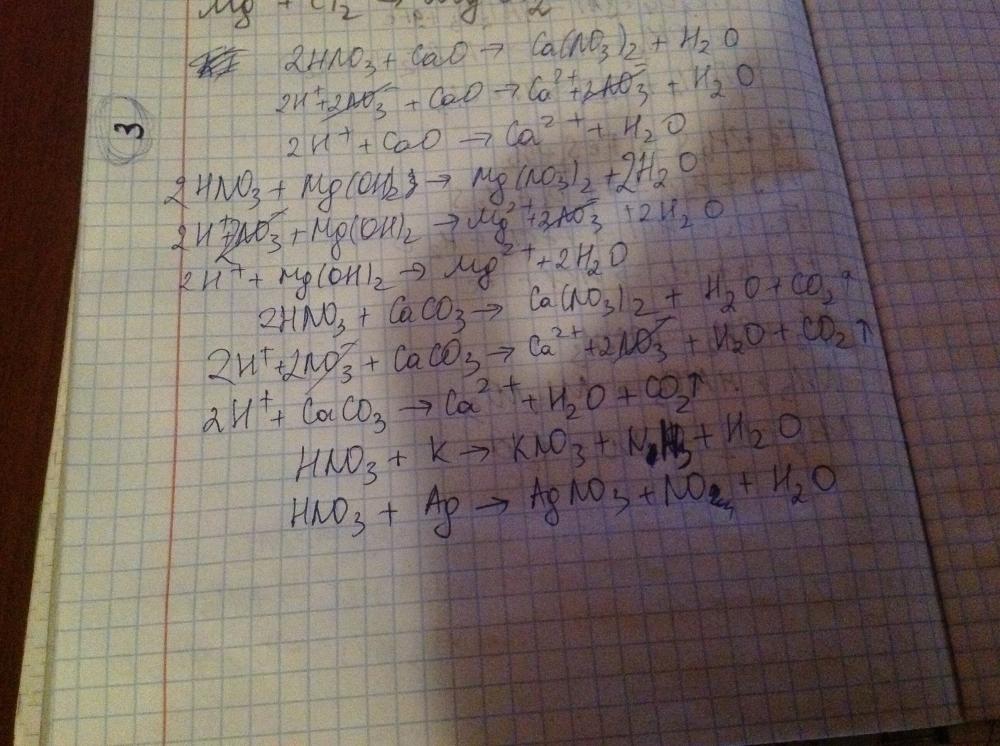 Mg + Cl2 →
2HNO3 + CaO → Ca(NO3)2 + H2O
2H⁺ + 2NO3⁻ + CaO → Ca²⁺ + 2NO3⁻ + H2O
3
2H⁺ + CaO → Ca²⁺ + H2O
2HNO3 + Mg(OH)2 → Mg(NO3)2 + 2H2O
2H⁺ + 2NO3⁻ + Mg(OH)2 → Mg²⁺ + 2NO3⁻ + 2H2O
2H⁺ + Mg(OH)2 → Mg²⁺ + 2H2O
2HNO3 + CaCO3 → Ca(NO3)2 + H2O + CO2↑
2H⁺ + 2NO3⁻ + CaCO3 → Ca²⁺ + 2NO3⁻ + H2O + CO2↑
2H⁺ + CaCO3 → Ca²⁺ + H2O + CO2↑
HNO3 + K → KNO3 + + H2O
HNO3 + Ag → AgNO3 + NO2 + H2O